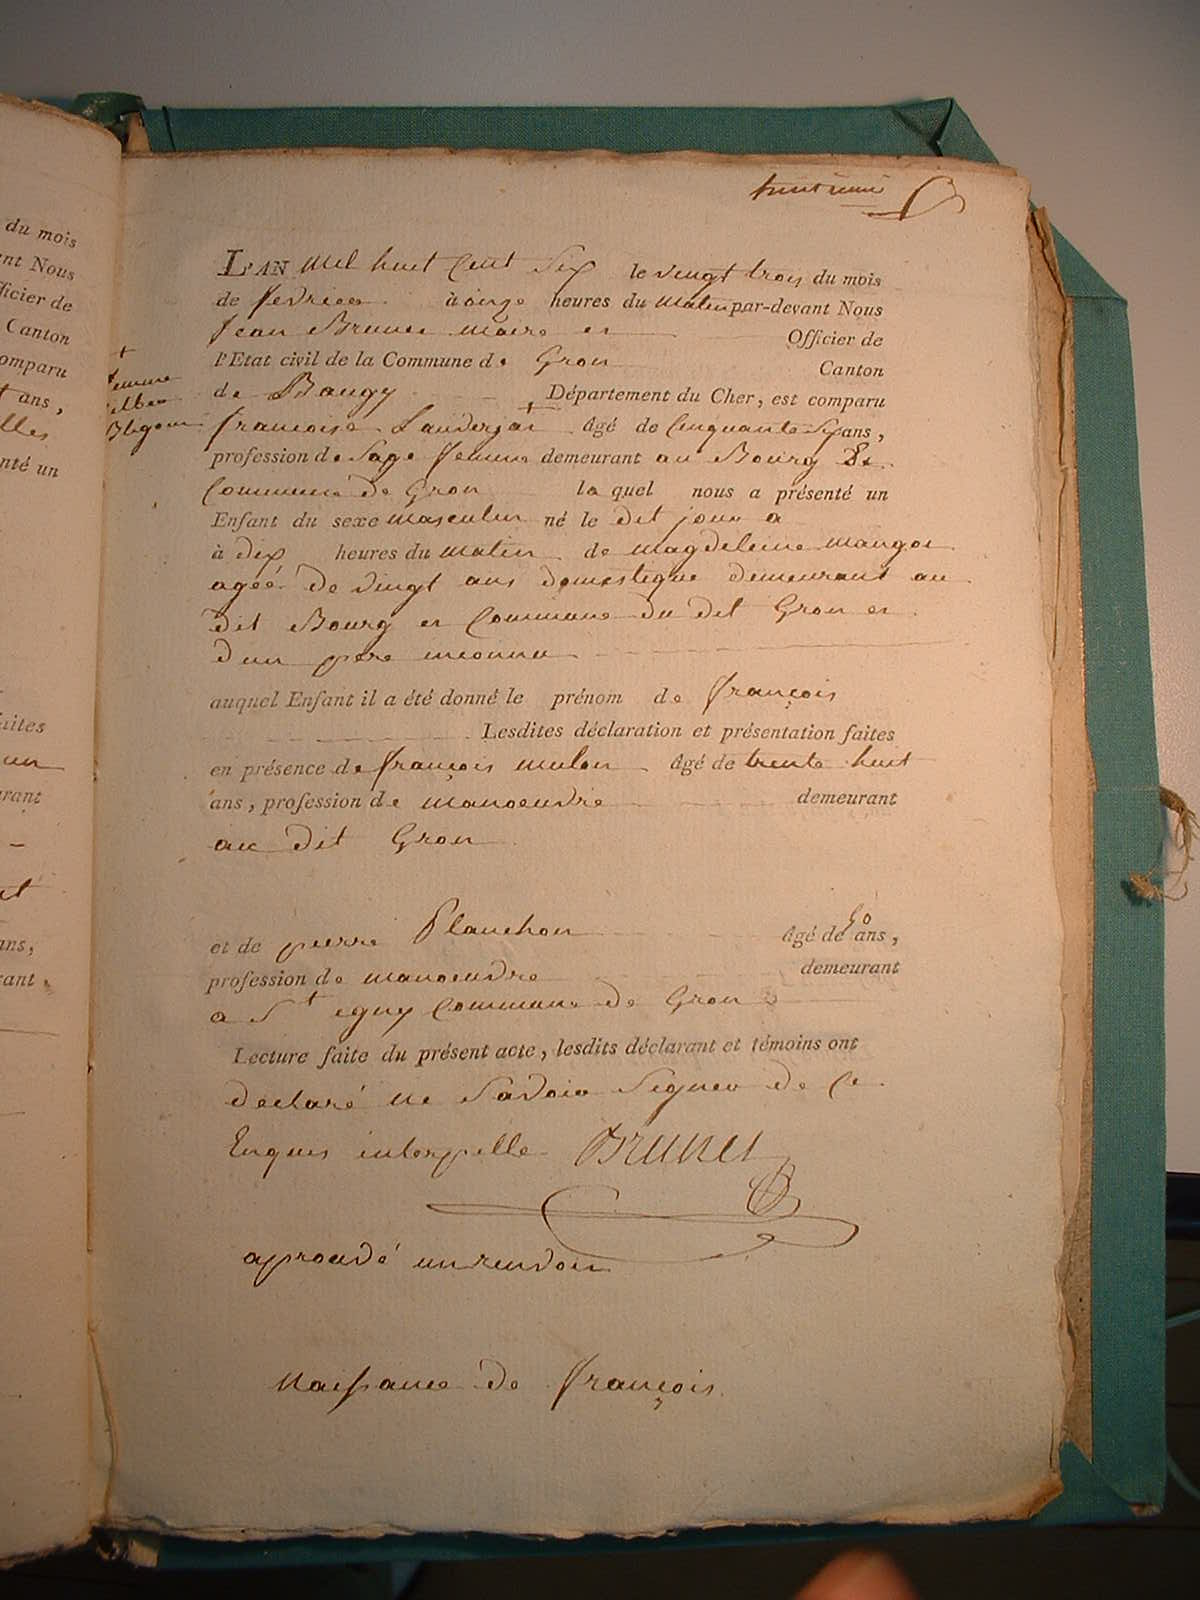 du mois
ent Nous
fficier de
Canton
omparu
t ans,
lles
nté un
faites
un
urant
ans,
rant.
L'AN mil huit Cent Six le vingt trois du mois
de fevrier à onze heures du matin par-devant Nous
Jean Brunet maire et Officier de
l'Etat civil de la Commune de Gron Canton
de Baugy Département du Cher, est comparu
+
femme
françoise Lauderjat + âgé de Cinquante Six ans,
profession de Sage femme demeurant au Bourg &
Commune de Gron laquel nous a présenté un
Enfant du sexe masculin né le dit jour a
à dix heures du matin de magdeleine mangot
ageé de vingt ans domestique demeurant au
dit Bourg et Commune du dit Gron et
dun pere inconnu
auquel Enfant il a été donné le prénom de françois
Lesdites déclaration et présentation faites
en présence de françois mulon âgé de trente huit
ans, profession de manoeuvre demeurant
au dit Gron
et de pierre Planchon âgé de 50 ans,
profession de manoeuvre demeurant
a St igny Commune de Gron
Lecture faite du présent acte, lesdits déclarant et témoins ont
declaré ne Savoir Signer de Ce
Enques interpelle Brunet
aprouvé un renvoie
Naissance de françois